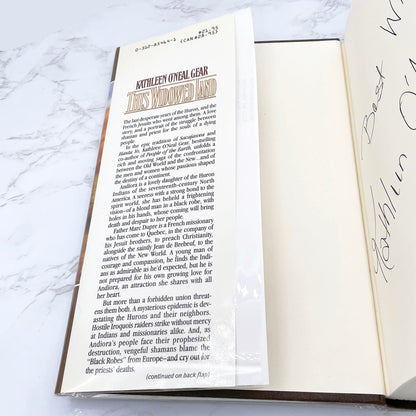 0-312-85469-1
$21.95
(CAN $28.95)
KATHLEEN O'NEAL GEAR
THIS WIDOWED LAND
The last desperate years of the Huron, and the
French Jesuits who went among them. A love
story, and a portrait of the struggle between
shaman and priest for the souls of a dying
people.
In the epic tradition of Sacajawea and
Hanta Yo, Kathleen O'Neal Gear, bestselling
co-author of People of the Earth, unfolds a
rich and moving saga of the confrontation
between the Old World and the New...and of
the men and women whose passions shaped
the destiny of a continent.
Andiora is a lovely daughter of the Huron
Indians of the seventeenth-century North
America. A seeress with a strong bond to the
spirit world, she has beheld a frightening
vision–of a blond man in a black robe, with
holes in his hands, whose coming will bring
death and despair to her people.
Father Marc Dupre is a French missionary
who has come to Quebec, in the company of
his Jesuit brothers, to preach Christianity,
alongside the saintly Jean de Brebeuf, to the
natives of the New World. A young man of
courage and compassion, he finds the Indi-
ans as admirable as he'd expected, but he is
not prepared for his own growing love for
Andiora, an attraction she shares with all
her heart.
But more than a forbidden union threat-
ens them both. A mysterious epidemic is dev-
astating the Hurons and their neighbors.
Hostile Iroquois raiders strike without mercy
at Indians and missionaries alike. And, as
Andiora's people face their prophesized
destruction, vengeful shamans blame the
"Black Robes" from Europe–and cry out for
the priests' death.
(continued on back flap)
Best Wi
Kathleen O'N